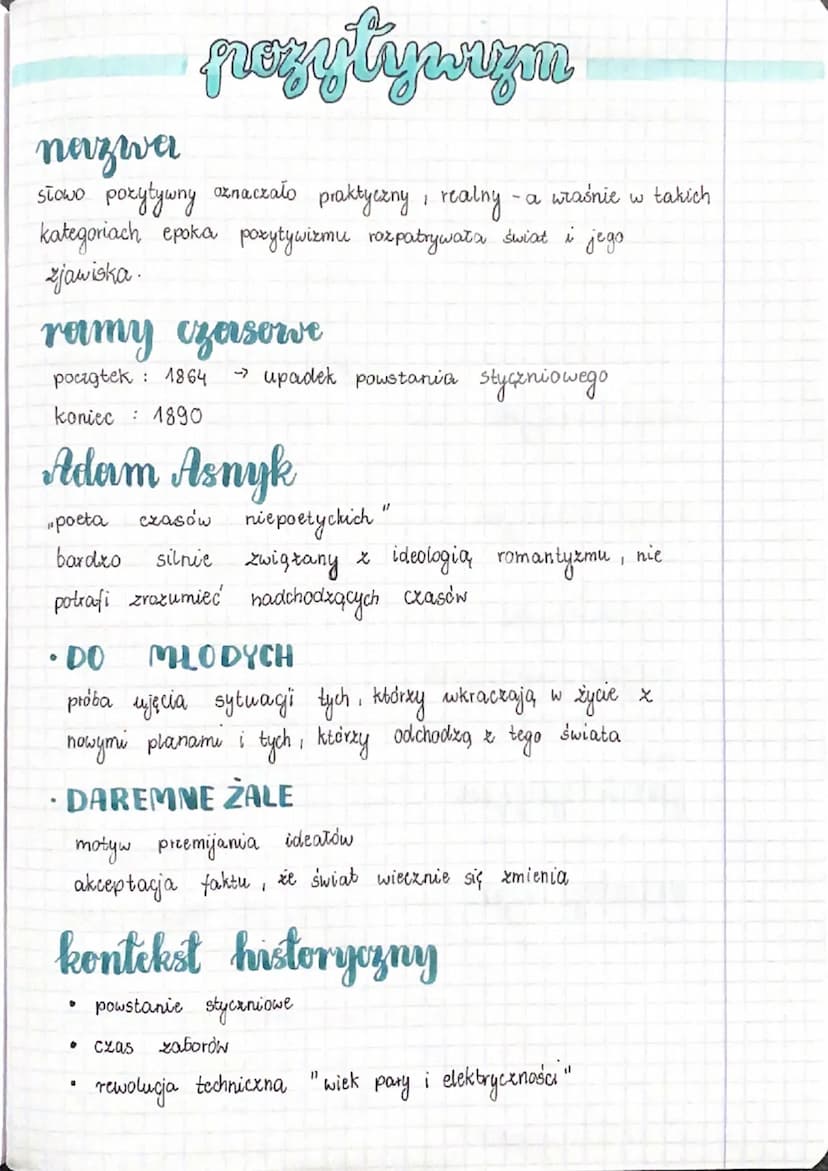 pozytywizm
nazwa
słowo pozytywny oznaczało praktyczny, realny - a właśnie w takich
kategoriach epoka pozytywizmu rozpatrywała świat i jego
zjawiska.
ramy czasowe
początek : 1864 → upadek powstania styczniowego
koniec : 1890
Adam Asnyk
„poeta czasów niepoetyckich"
bardzo silnie związany z ideologią romantyzmu, nie
potrafi zrozumieć nadchodzących czasów
• DO MŁODYCH
próba ujęcia sytuacji tych, którzy wkraczają w życie z
nowymi planami i tych, którzy odchodzą z tego świata
• DAREMNE ŻALE
motyw przemijania ideałów
akceptacja faktu, że świat wiecznie się zmienia
kontekst historyczny
• powstanie styczniowe
• czas zaborów
• rewolucja techniczna "wiek pary i elektryczności"